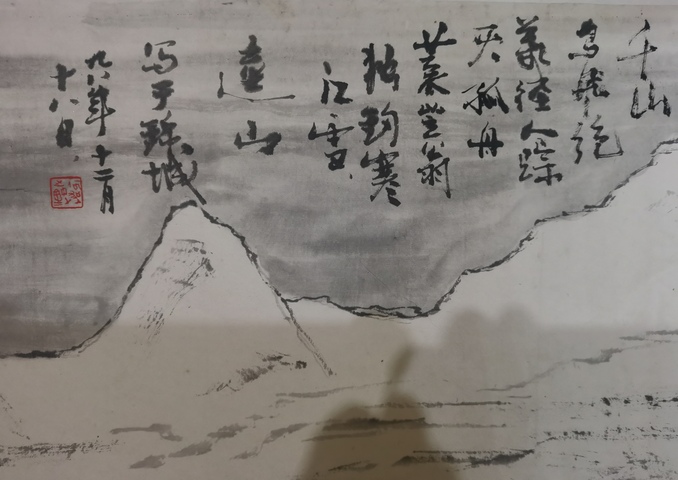 千山
鸟飛绝
萬徑人踪
灭孤舟
蓑笠翁
独钓寒
江雪
遠山
写于珠城
九八年十二月
十八日